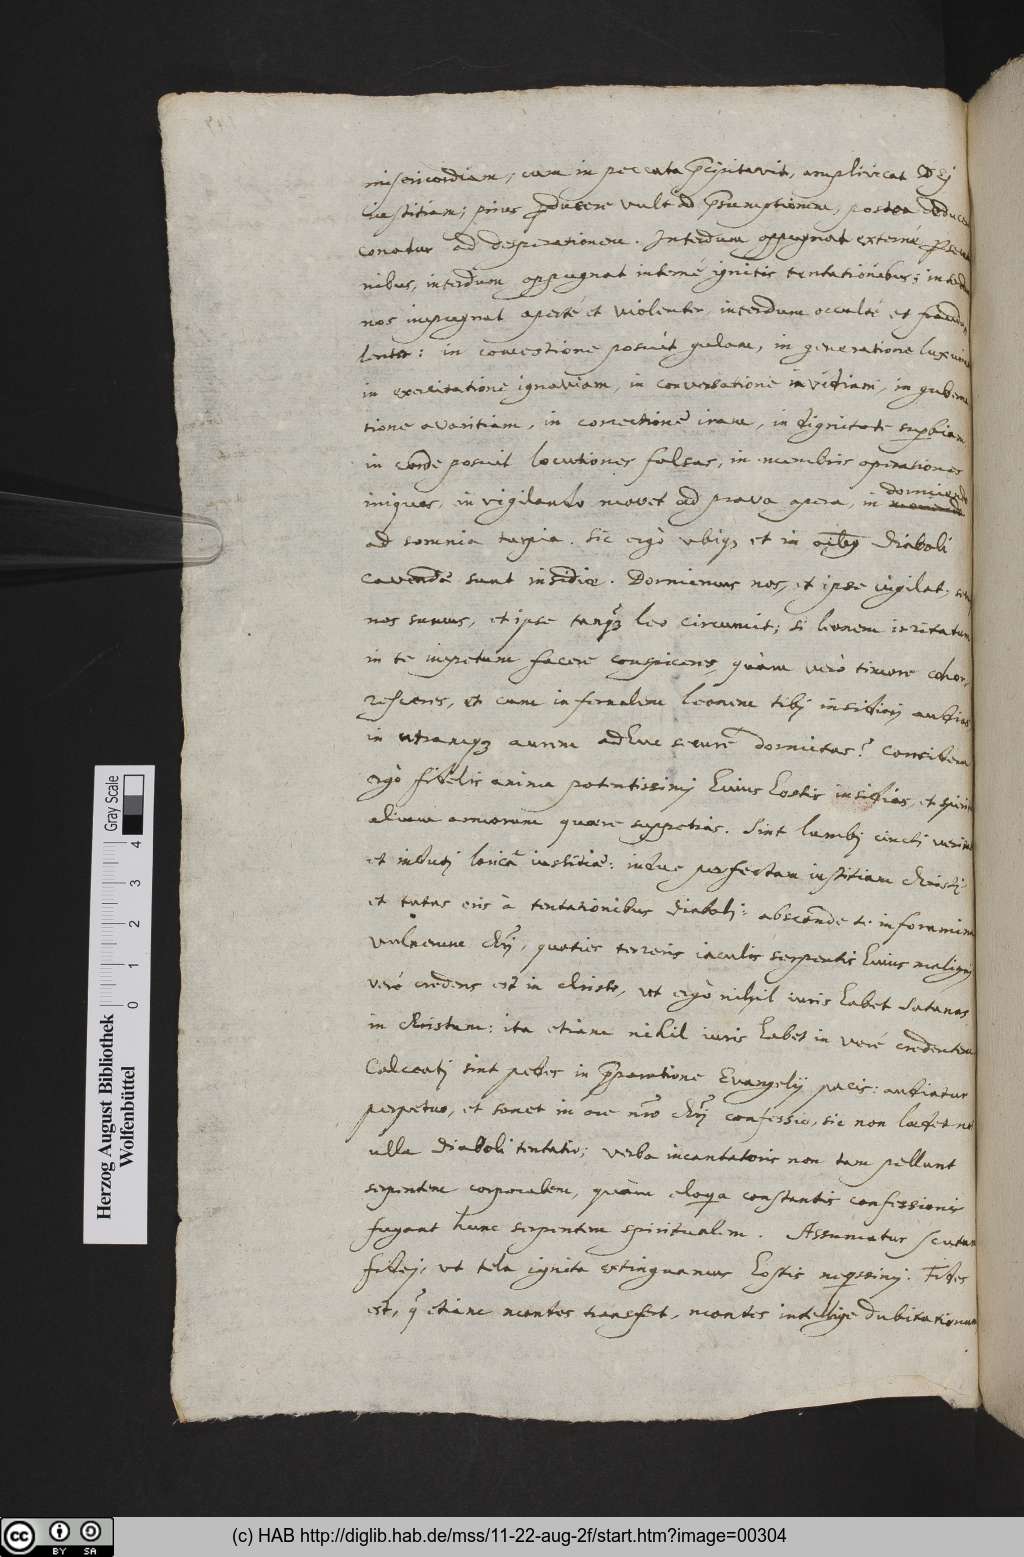 misericordiam, cum in peccata p̄cipitavit, amplificat DEj
iustitiam; prius producere vult ad p̄sumptionem, postea adducere
conatur ad desperationem. Interdum oppugnat externè
nibus, interdum oppugnat internè ignitis tentationibus; interdum
nos impugnat apertè et violenter, interdum occultè et fraudu,
lenter: in comestione posuit gulam, in generatione luxuriam
in exercitatione ignaviam, in conversatione invidiam, in guberna
tione avaritiam, in correctione iram, in dignitate supbiam
in corde posuit locutiones falsas, in membris operationes
iniquas, in vigilando movet ad prava opera, in dormiendo
ad somnia turpia. Sic ergò ubiq; et in oibq Diaboli
cavendæ sunt insidiæ. Dormimus nos, et ipse vigilat,
nos sumus, et ipse tanq̄ leo circumit; si leonem irritatum
in te impetum facere conspiceres, quàm verò timore cohor,
resceres, et cum infernalem leonem tibj insidiarj audias,
in utramq; aurem adhuc securè dormitas? Considera
ergò fidelis anima potentissimj huius hostis insidias, et spiritu
alium armorum quære suppetias. Sint lumbj cinctj veritate
et indutj loricâ iustitiæ: indue perfectam iustitiam Christj
et tutus eris à tentationibus Diabolj: absconde te in foramina
vulnerum Chrj, quoties terreris iaculis serpentis huius malignj
verè credens est in Christo, ut ergò nihil iuris habet Satanas
in Christum: ita etiam nihil iuris habet in verè credentem
Calceatj sint pedes in p̄paratione Evangelij pacis: audiatur
perpetuo, et sonet in ore nr̄o Chrj confessio, sic non lædet n
ulla Diaboli tentatio; verba incantatoris non tam pellunt
serpentem corporalem, quàm eloqia constantis confessionis
fugant hunc serpentem spiritualem. Assumatur scutum
fidej, ut tela ignita extinguamus hostis neqssimj. Fides
est, q̄ etiam montes transfert, montes intellige dubitationum
Herzog August Bibliothek
Wolfenbüttel
0 1 2 3 4
Gray Scale
cc BY SA
(c) HAB http://diglib.hab.de/mss/11-22-aug-2f/start.htm?image=00304